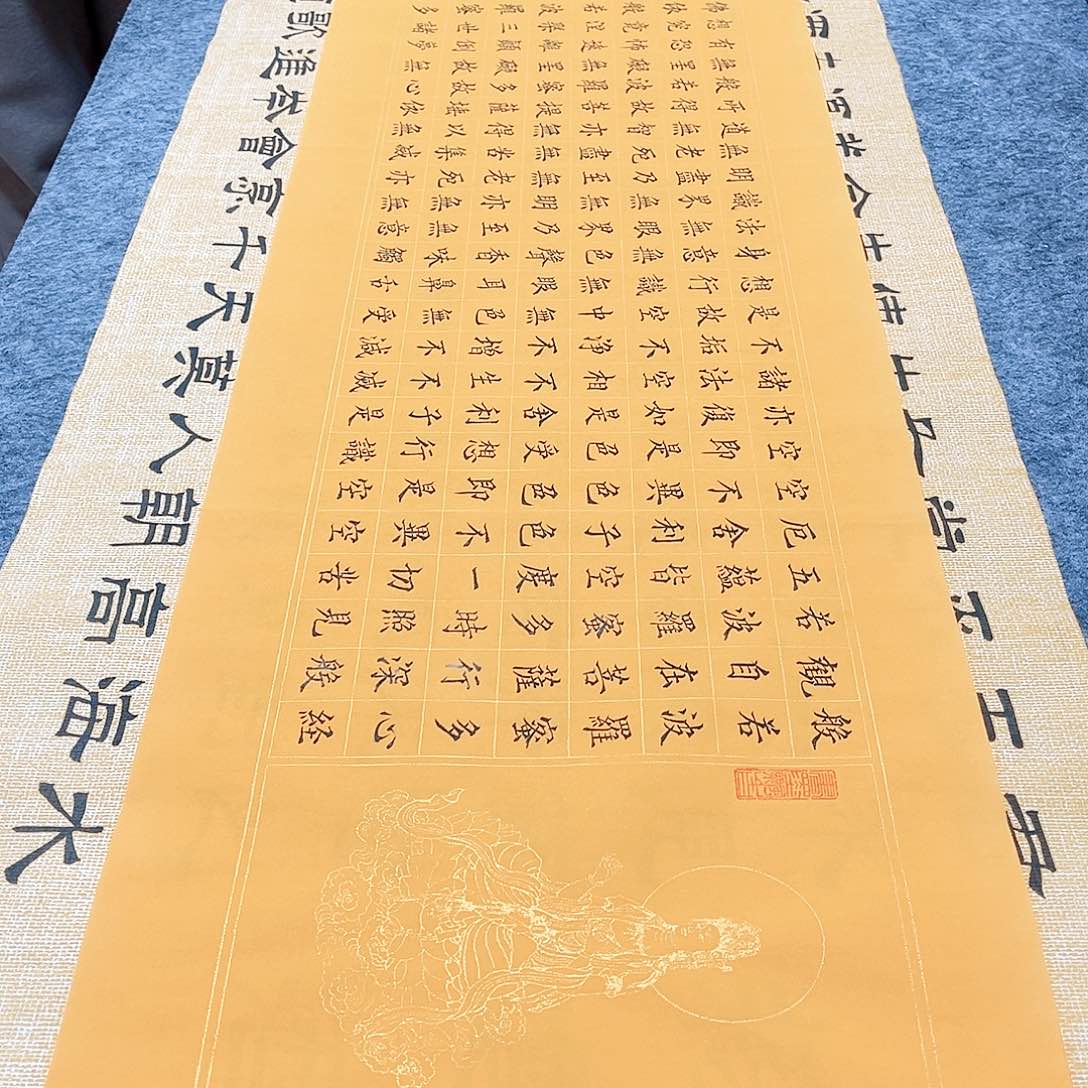 般若波羅蜜多心経
觀自在菩薩行深般
若波羅蜜多時照見
五蘊皆空度一切苦
厄舍利子色不異空
空不異色色即是空
空即是色受想行識
亦復如是舍利子是
諸法空相不生不滅
不垢不净不增不減
是故空中無色無受
想行識無眼耳鼻舌
身意無色聲香味觸
法無眼界乃至無意
識界無無明亦無無
明盡乃至無老死亦
無老死盡無苦集滅
道無智亦無得以無
所得故菩提薩埵依
般若波羅蜜多故心
無罣礙無罣礙故無
有恐怖遠離顛倒夢
想究竟涅槃三世諸
佛依般若波羅蜜多
水
海
高
朝
人
莫
天
千
會
進
歌